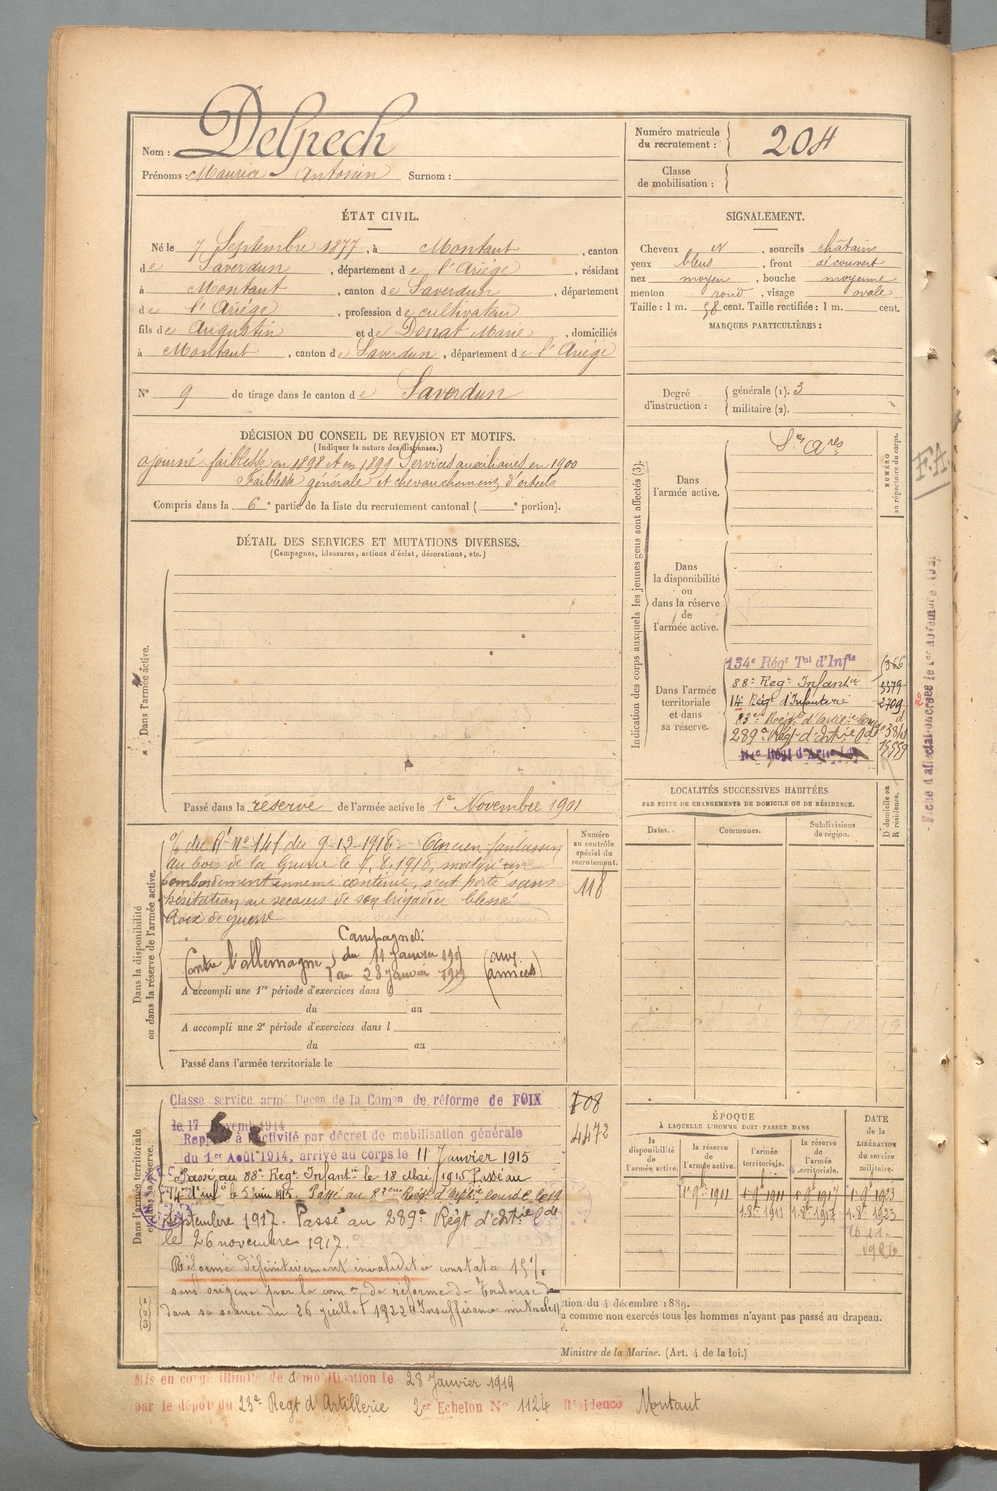 Nom : Delpech
Prénoms : Maurice Antonin Surnom :
Numéro matricule du recrutement : 204
Classe de mobilisation :
ÉTAT CIVIL.
Né le 7 Septembre 1877, à Montaut, canton
de Saverdun, département de l'Ariège, résidant
à Montaut, canton de Saverdun, département
de l'Ariège, profession de cultivateur
fils de Augustin et de Donat Marie, domiciliés
à Montaut, canton de Saverdun, département de l'Ariège
N° 9 de tirage dans le canton de Saverdun
SIGNALEMENT.
Cheveux, sourcils châtains
yeux bleus, front découvert
nez moyen, bouche moyenne
menton rond, visage ovale
Taille : 1 m. 58 cent. Taille rectifiée : 1 m. cent.
MARQUES PARTICULIÈRES :
Degré d'instruction : générale (1). 3
militaire (2).
DÉCISION DU CONSEIL DE REVISION ET MOTIFS.
(Indiquer la nature des dispenses.)
ajourné faiblesse en 1898 et en 1899 Services auxiliaires en 1900
Faiblesse générale et chevauchement d'orteils
Compris dans la 6e partie de la liste du recrutement cantonal ( e portion).
DÉTAIL DES SERVICES ET MUTATIONS DIVERSES.
(Campagnes, blessures, actions d'éclat, décorations, etc.)
Dans l'armée active.
Passé dans la réserve de l'armée active le 1er Novembre 1901
Indication des corps auxquels les jeunes gens sont affectés (3).
NUMÉRO au répertoire du corps.
Dans l'armée active.
Sces Ares
Dans la disponibilité ou dans la réserve de l'armée active.
Dans l'armée territoriale et dans sa réserve.
134e Régt Tal d'Infie
88e Regt Infantie 3379
14 Régt d'Infanterie 2709
83e Régt d'Artie
289e Regt d'Artie
F.A.
LOCALITÉS SUCCESSIVES HABITÉES
PAR SUITE DE CHANGEMENTS DE DOMICILE OU DE RÉSIDENCE.
Dates. Communes. Subdivisions de région. D domicile ou R résidence.
Dans la disponibilité ou dans la réserve de l'armée active.
Numéro au contrôle spécial du recrutement.
118
du Rt No 141 du 9-12-1916 Ancien fantassin
au bois de la Gruerie le, malgré un
bombardement ennemi continu, s'est porté sans
hésitation au secours de son brigadier blessé
Croix de guerre
Campagnes :
Contre l'Allemagne du 11 Janvier 1915
au 28 Janvier 1919 (aux armées)
A accompli une 1re période d'exercices dans
du au
A accompli une 2e période d'exercices dans l
du au
Passé dans l'armée territoriale le
Dans l'armée territoriale et dans sa réserve.
708
4472
Classé service armé Decon de la Comon de réforme de FOIX
le 17 1914
Rappelé à l'activité par décret de mobilisation générale
du 1er Août 1914, arrivé au corps le 11 Janvier 1915
Passé au 88e Regt Infantie le 18 Mai 1915 Passé au
14e d'infie le 5 juin 1915. Passé au 83eme Regt d'artie lourde le 19
Septembre 1917. Passé au 289e Régt d'Artie Lde
le 26 novembre 1917.
Réformé définitivement invalidité constatée 15%
sans origine par la comon de réforme de Toulouse dans
dans sa séance du 26 juillet 1922 Insuffisance mitrale
ÉPOQUE
À LAQUELLE L'HOMME DOIT PASSER DANS
la disponibilité de l'armée active. la réserve de l'armée active. l'armée territoriale. la réserve de l'armée territoriale.
DATE de la LIBÉRATION du service militaire.
tion du 4 décembre 1889.
a comme non exercés tous les hommes n'ayant pas passé au drapeau.
Ministre de la Marine. (Art. 4 de la loi.)
Mis en congé illimité de démobilisation le 28 Janvier 1919
par le dépôt du 23e Regt d'Artillerie 2er Echelon N° 1124 Résidence Montaut